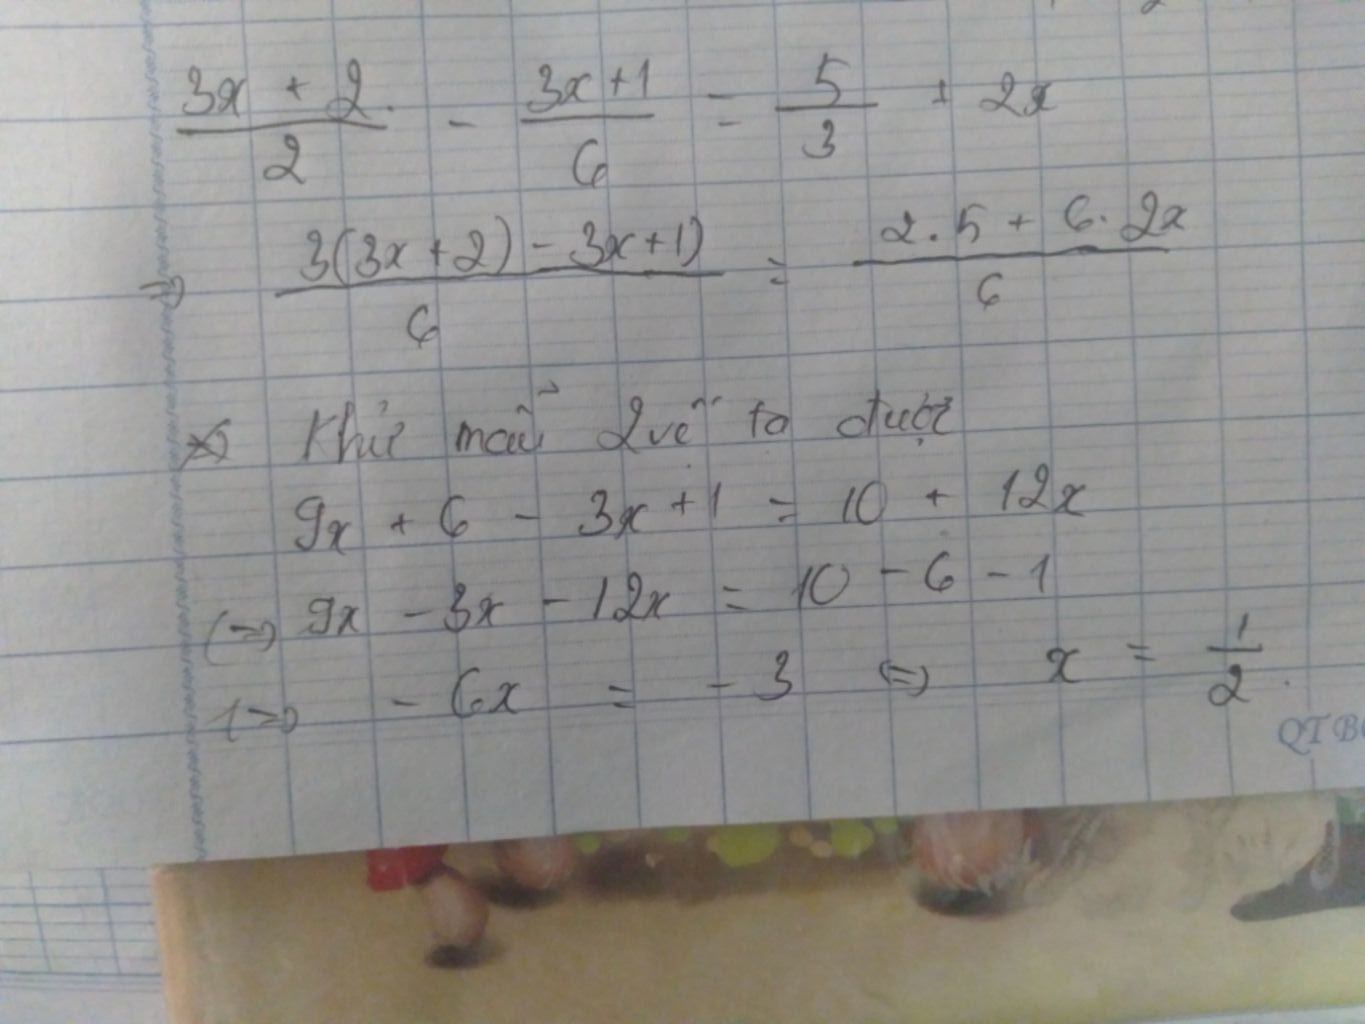 3x + 2 / 2 - 3x + 1 / 6 = 5 / 3 + 2x
⇒ 3(3x + 2) - 3x + 1) / 6 = 2 . 5 + 6 . 2x / 6
Khử mẫu 2 vế ta được
9x + 6 - 3x + 1 = 10 + 12x
⇔ 9x - 3x - 12x = 10 - 6 - 1
⇔ - 6x = - 3 ⇔ x = 1 / 2 .